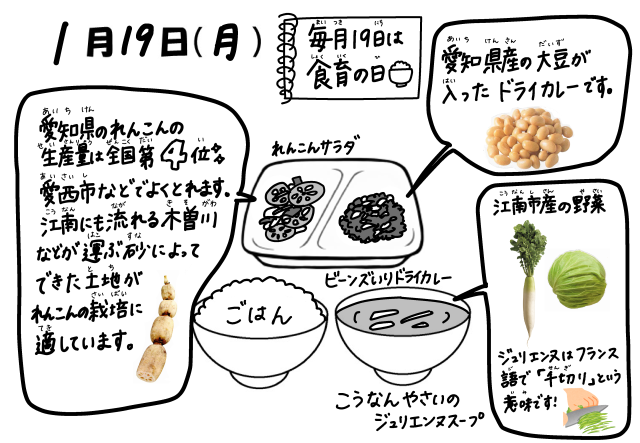 1月19日(月)
毎月19日は
食育の日
愛知県産の大豆が
入ったドライカレーです。
愛知県のれんこんの
生産量は全国第4位
愛西市などでよくとれます。
江南にも流れる木曽川
などが運ぶ砂によって
できた土地が
れんこんの栽培に
適しています。
れんこんサラダ
ビーンズいりドライカレー
ごはん
こうなんやさいの
ジュリエンヌスープ
江南市産の野菜
ジュリエンヌはフランス
語で「千切り」という
意味です!